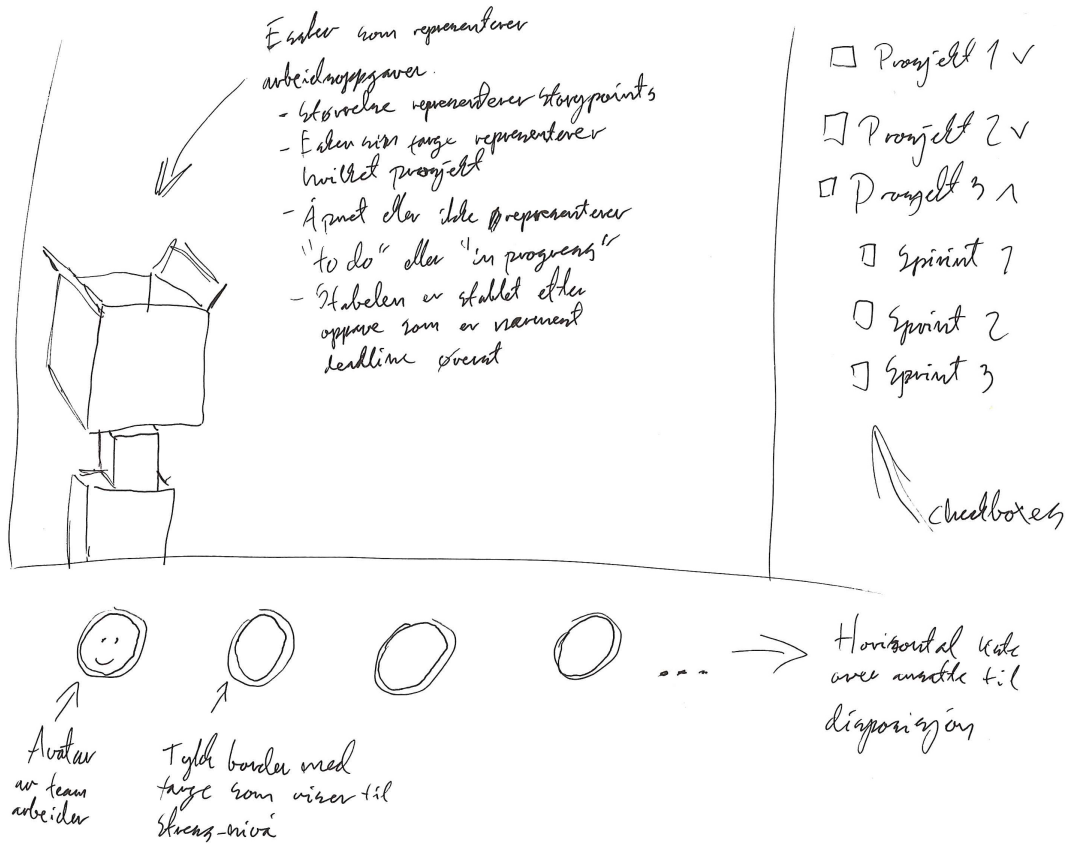 Esker som representerer
arbeidsoppgaver.
- Størrelse representerer storypoints
- Esken sin farge representerer
hvilket prosjekt
- Åpnet eller ikke representerer
"to do" eller "in progress"
- Stabelen er stablet etter
oppgave som er nærmest
deadline øverst
Prosjekt 1
Prosjekt 2
Prosjekt 3
Sprint 1
Sprint 2
Sprint 3
checkboxes
...
Horisontal liste
over ansatte til
disposisjon
Avatar
av team
arbeider
Tykk border med
farge som viser til
stress-nivå